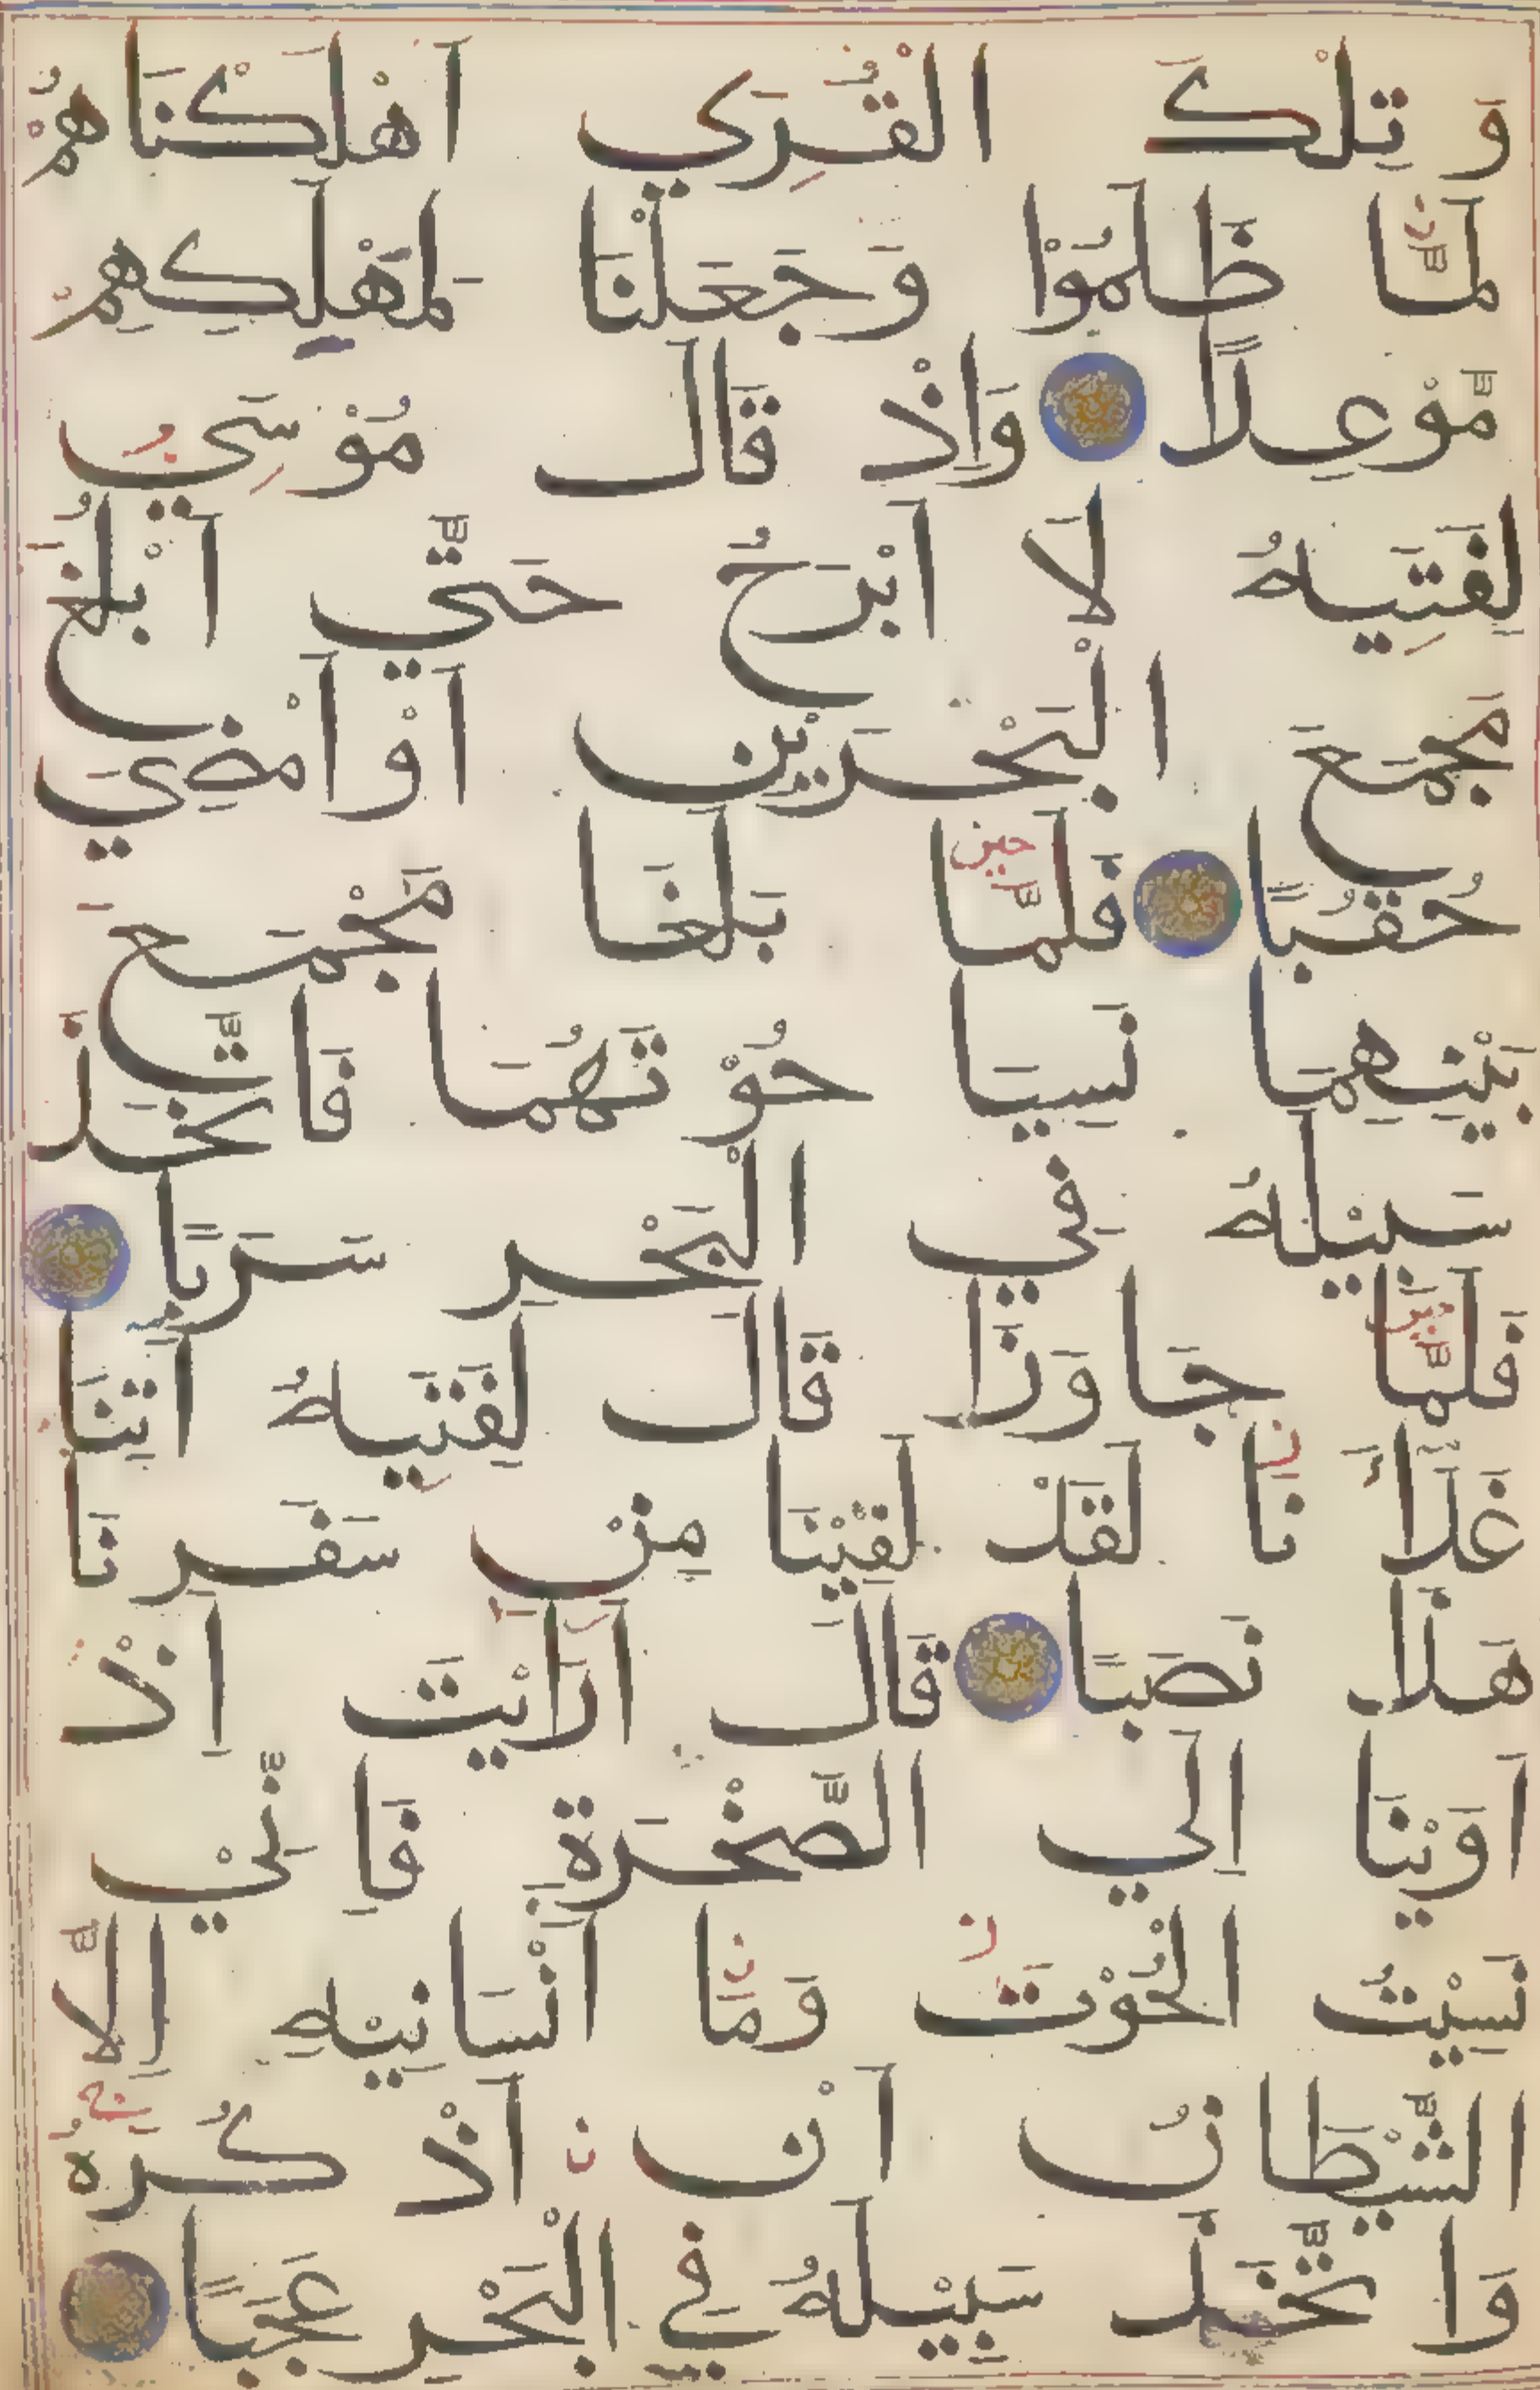 وَ تِلْكَ الْقُرَي اَهْلَكْنَاهُمْ
لَمَّا ظَلَمُوْا وَجَعَلْنَا لِمَهْلِكِهِمْ
مَّوْعِدًا وَاِذْ قَالَ مُوْسَي
لِفَتَيهُ لَا اَبْرَحُ حَتَّي اَبْلُغَ
مَجْمَعَ الْبَحْرَيْنِ اَوْ اَمْضِيَ
حُقُبًا فَلَمَّا بَلَغَا مَجْمَعَ
بَيْنِهِمَا نَسِيَا حُوْتَهُمَا فَاتَّخَذَ
سَبِيْلَهُ فِي الْبَحْرِ سَرَبًا
فَلَمَّا جَاوَزَا قَالَ لِفَتَيهُ اٰتِنَا
غَدَاءَ نَا لَقَدْ لَقِيْنَا مِنْ سَفَرِ نَا
هَذَا نَصَبًا قَالَ اَرَاَيْتَ اِذْ
اَوَيْنَا اِلَي الصَّخْرَةِ فَاِنِّيْ
نَسِيْتُ الْحُوْتَ وَمَا اَنْسَانِيْهِ اِلَّا
الشَّيْطَانُ اَنْ اَذْكُرَهُ
وَاتَّخَذَ سَبِيْلَهُ فِي الْبَحْرِ عَجَبًا